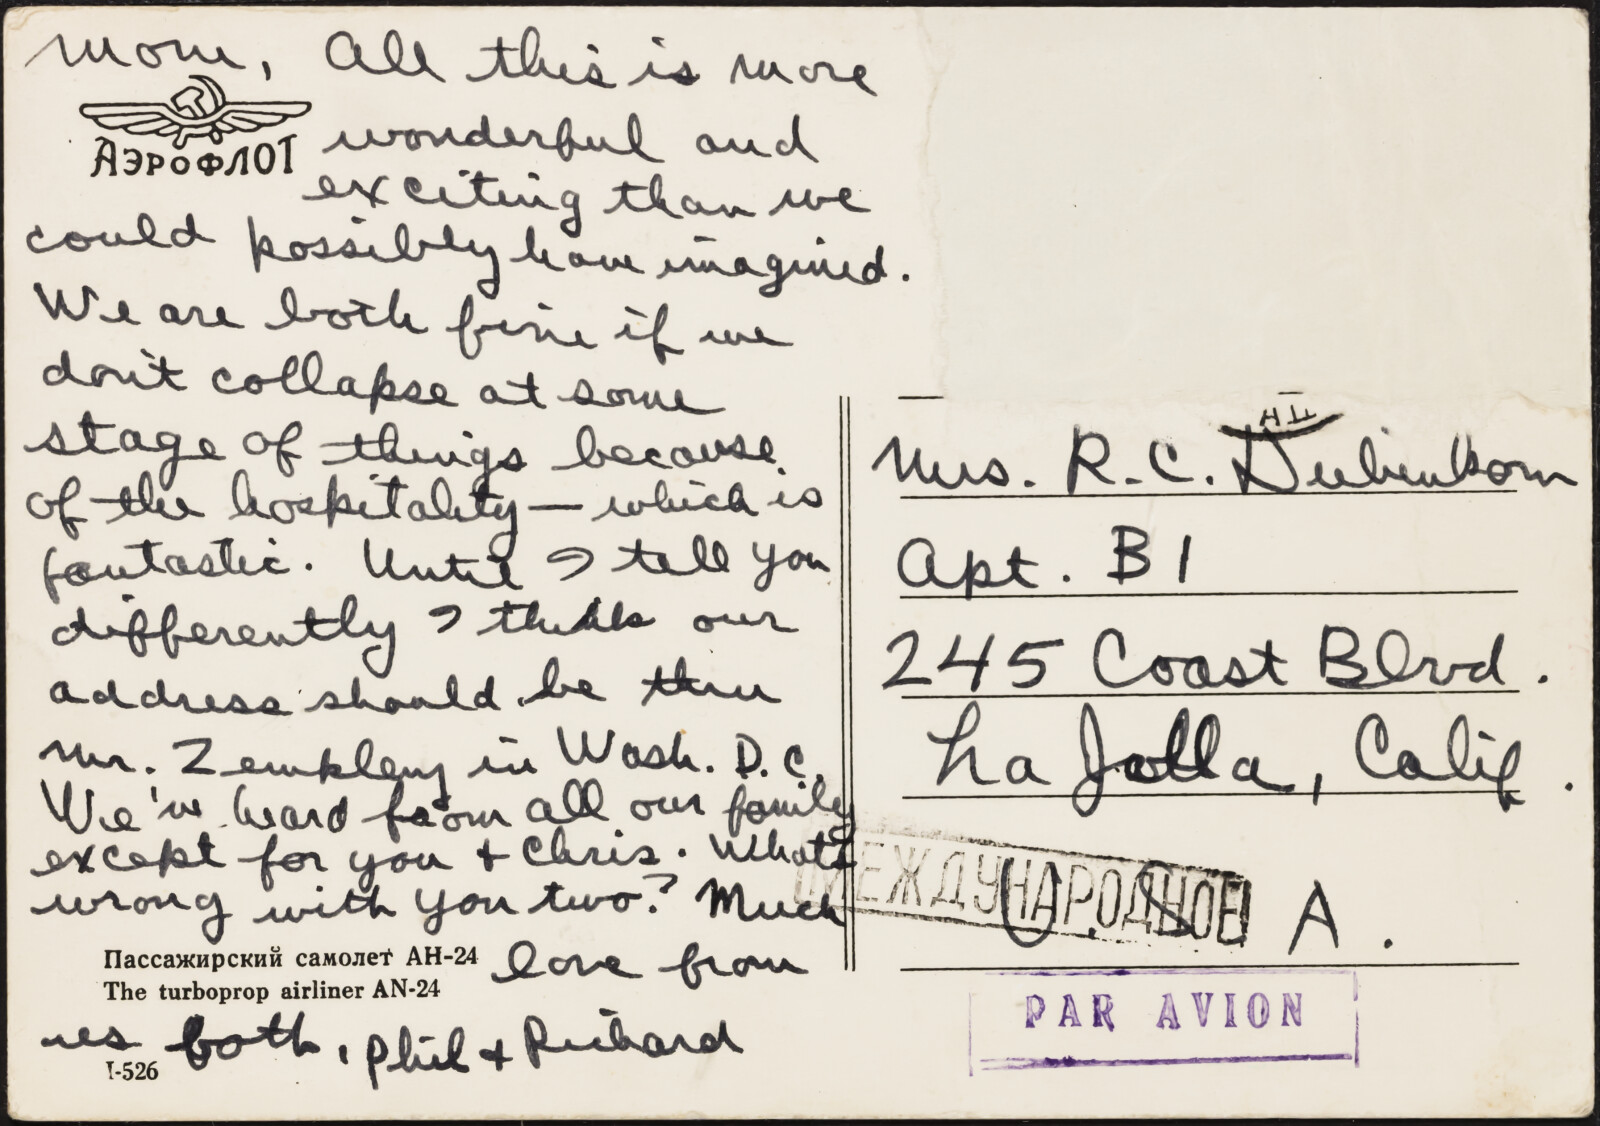 Mom, All this is more
АЭРОФЛОТ
wonderful and
exciting than we
could possibly have imagined.
We are both fine if we
don't collapse at some
stage of things because
of the hospitality — which is
fantastic. Until I tell you
differently I think our
address should be thru
Mr. Zemkleny in Wash. D.C.
We've heard from all our family
except for you + Chris. What's
wrong with you two? Much
love from
Пассажирский самолет АН-24
The turboprop airliner AN-24
us both, Phil + Richard
I-526
Mrs. R.C. Diebenkorn
Apt. B1
245 Coast Blvd.
La Jolla, Calif.
U.S.A.
МЕЖДУНАРОДНОЕ
PAR AVION